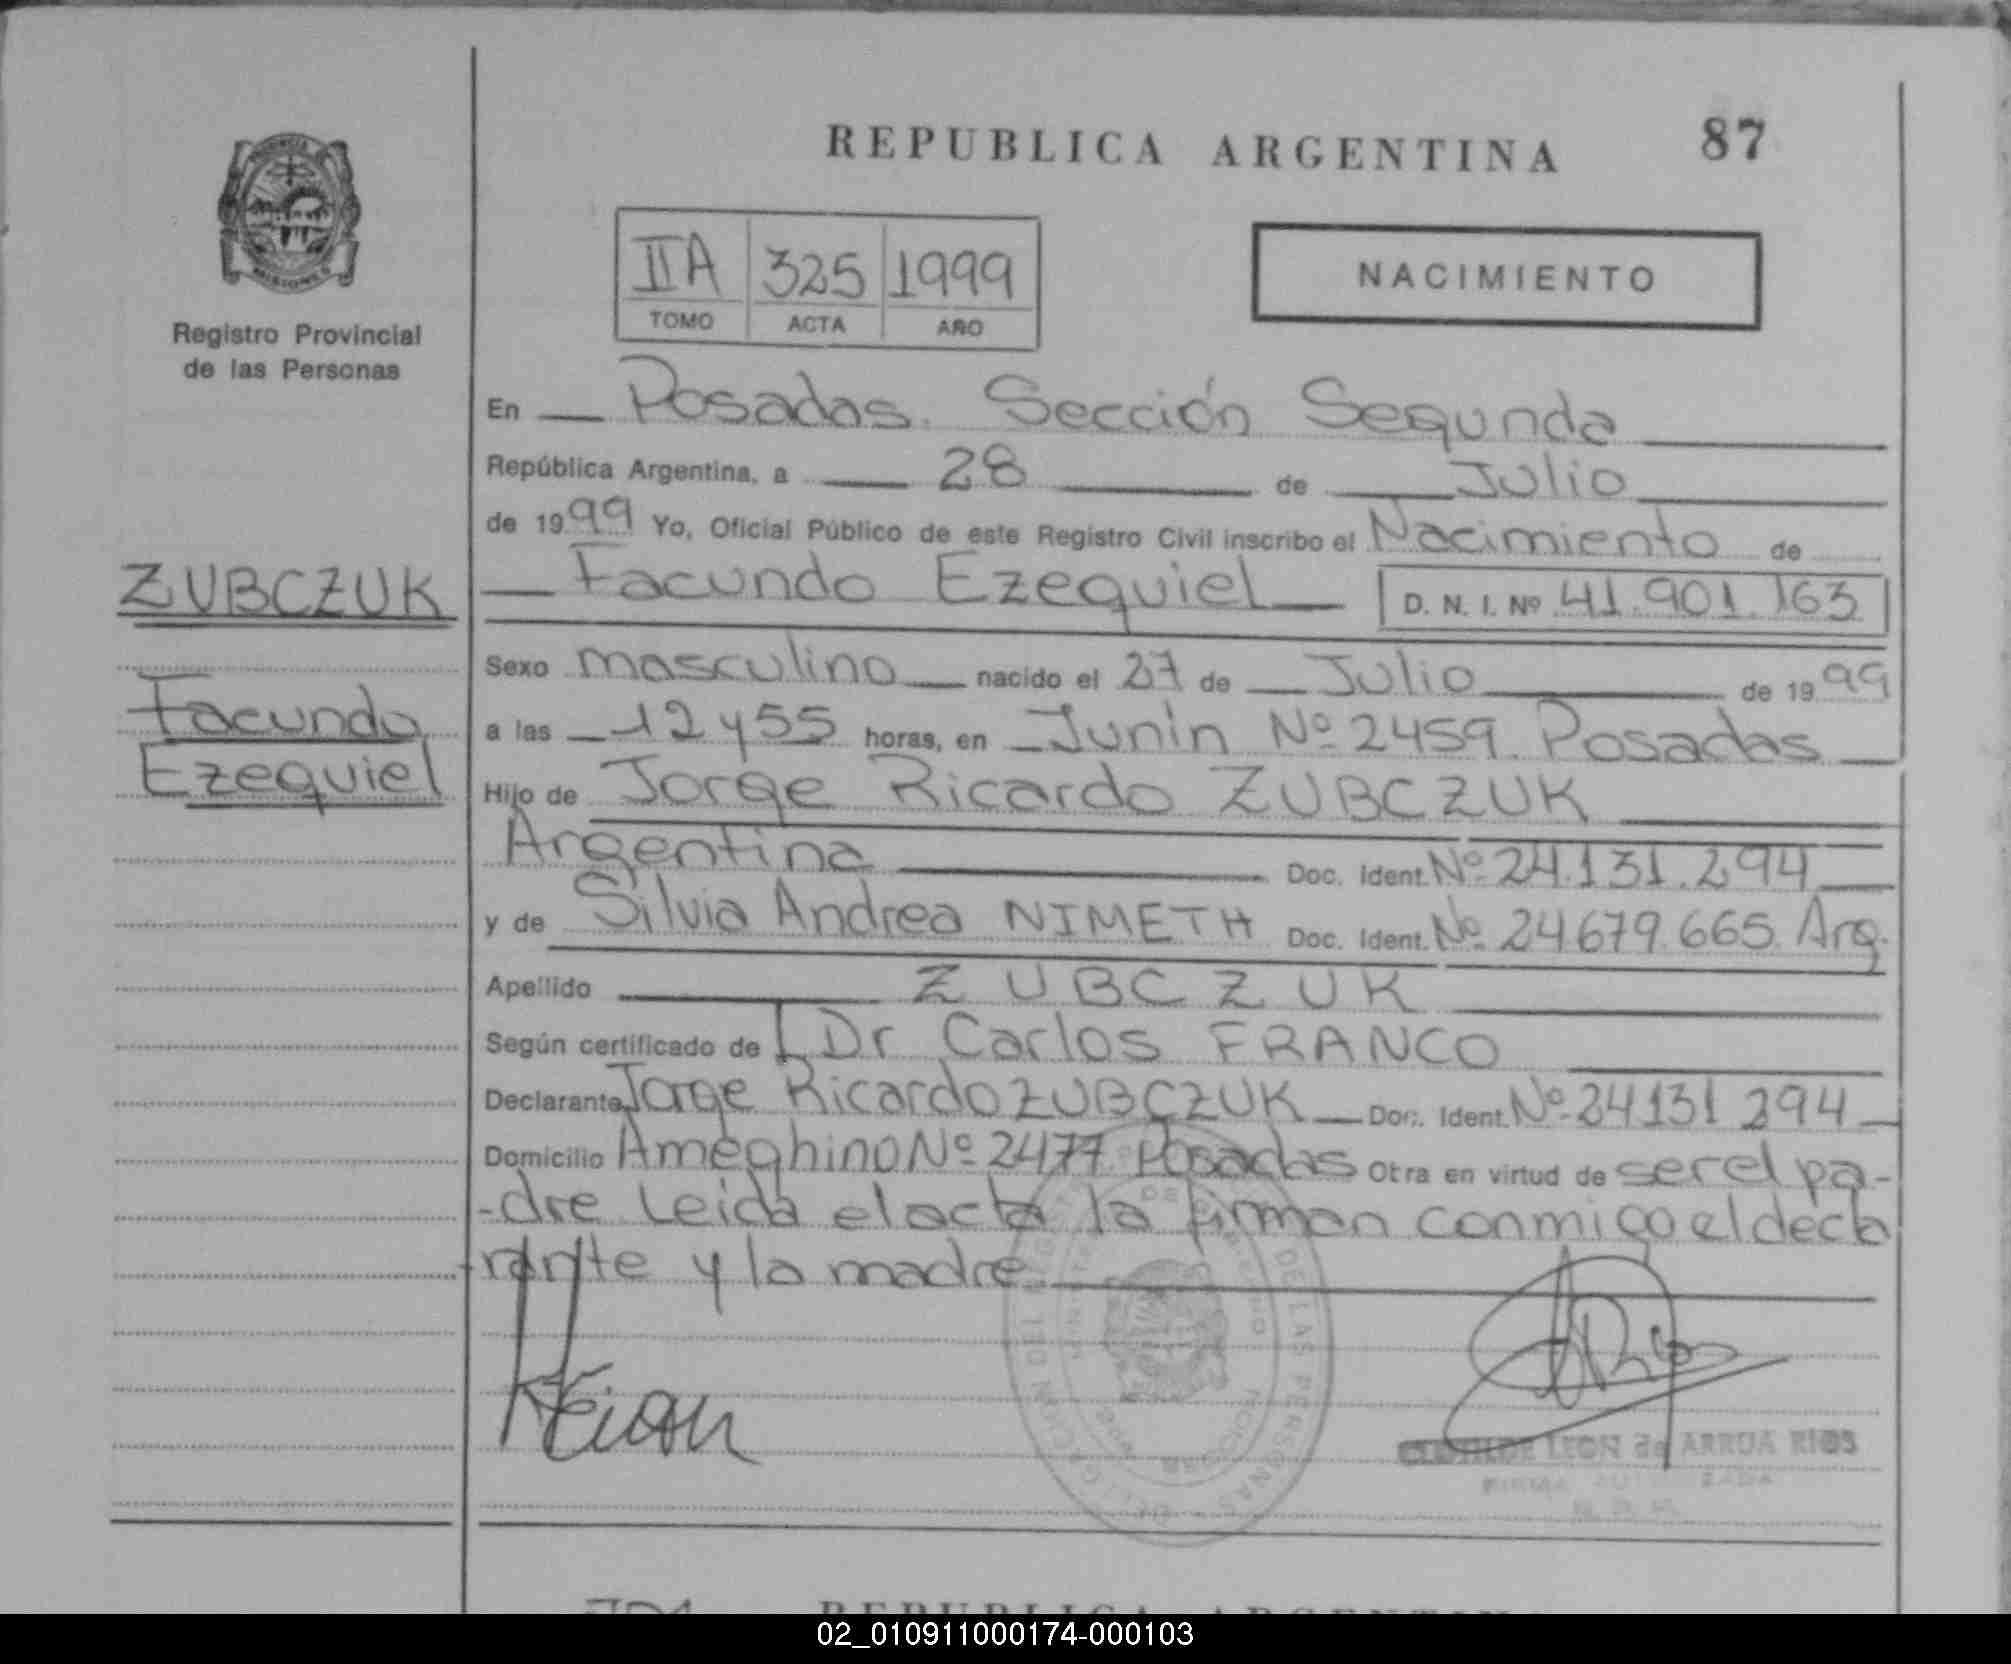 REPUBLICA ARGENTINA 87
IIA 325 1999
TOMO ACTA AÑO
NACIMIENTO
Registro Provincial
de las Personas
En Posadas. Sección Segunda
República Argentina, a 28 de Julio
de 1999 Yo, Oficial Público de este Registro Civil inscribo el Nacimiento de
Facundo Ezequiel D. N. I. Nº 41.901.163
ZUBCZUK
Facundo
Ezequiel
Sexo masculino nacido el 27 de Julio de 1999
a las 12 y 55 horas, en Junín Nº 2459. Posadas
Hijo de Jorge Ricardo ZUBCZUK
Argentina Doc. Ident. Nº 24.131.294
y de Silvia Andrea NIMETH Doc. Ident. Nº 24.679.665 Arg.
Apellido ZUBCZUK
Según certificado de Dr Carlos FRANCO
Declarante Jorge Ricardo ZUBCZUK Doc. Ident. Nº 24131294
Domicilio Ameghino Nº 2477 Posadas Otra en virtud de ser el pa-
-dre Leida el acta la firman conmigo el decla
rante y la madre
DE LAS PERSONAS
CLOTILDE LEON de ARRUA RIOS
FIRMA AUTORIZADA
REPUBLICA ARGENTIN
02_010911000174-000103